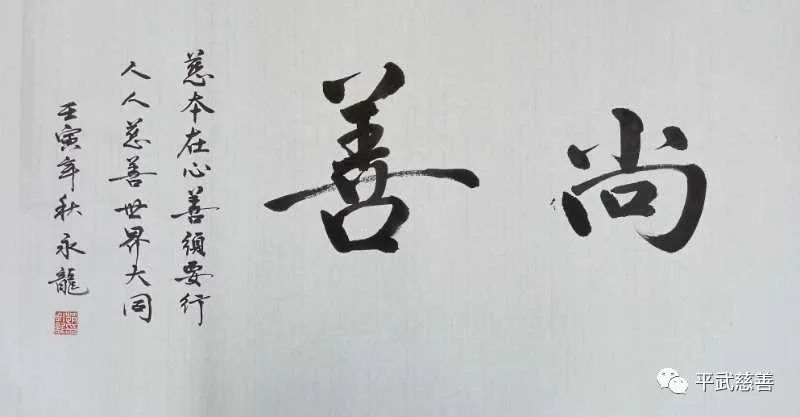 尚善
慈本在心善须要行
人人慈善世界大同
壬寅年秋永龍
平武慈善